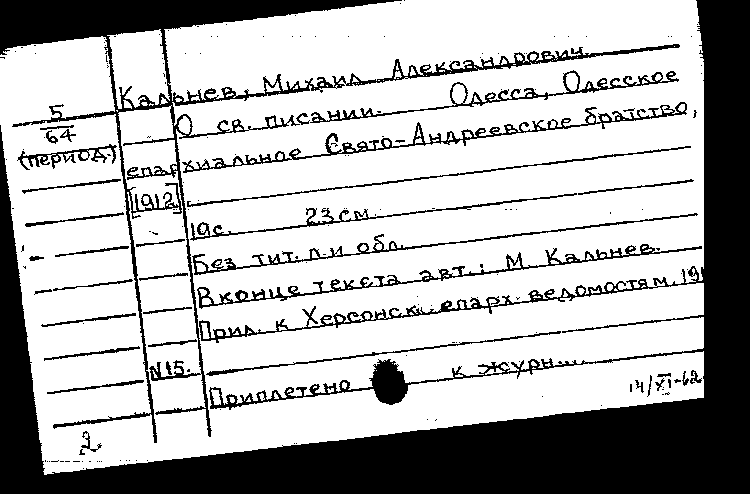 Кальнев, Михаил Александрович.
5
64
(период.)
О св. писании. Одесса, Одесское
епархиальное Свято-Андреевское братство,
[1912].
19с. 23см.
Без тит. л. и обл.
В конце текста авт.: М. Кальнев.
Прил. к Херсонск. епарх. ведомостям.
N15.
Приплетено к журн....
14/XI-62
2